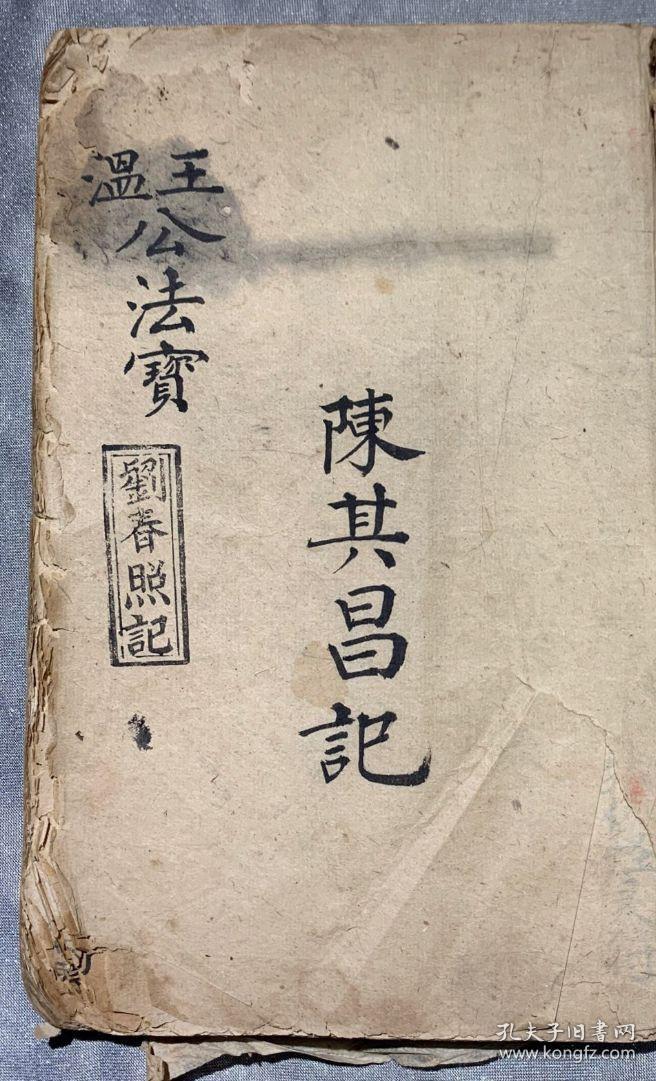 陳其昌記
王溫公法寶
劉春照記
孔夫子旧書网
www.kongfz.com